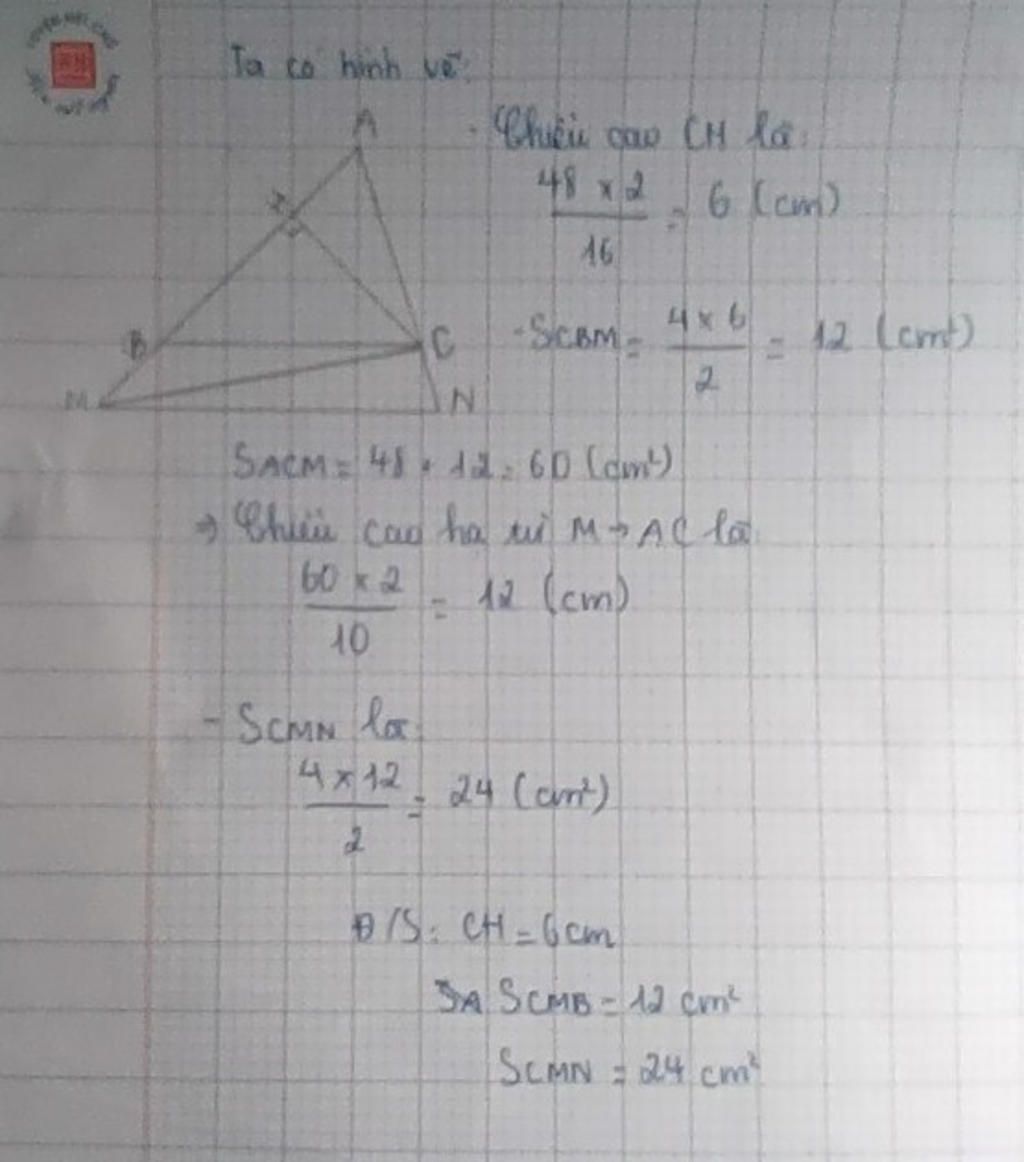 Ta có hình vẽ:
A
H
B
C
M
N
- Chiều cao CH là:
48 x 2 / 16 = 6 (cm)
- SCBM = 4 x 6 / 2 = 12 (cm²)
SACM = 48 + 12 = 60 (cm²)
=> Chiều cao hạ từ M → AC là:
60 x 2 / 10 = 12 (cm)
- SCMN là:
4 x 12 / 2 = 24 (cm²)
Đ/S: CH = 6cm
SCMB = 12 cm²
SCMN = 24 cm²